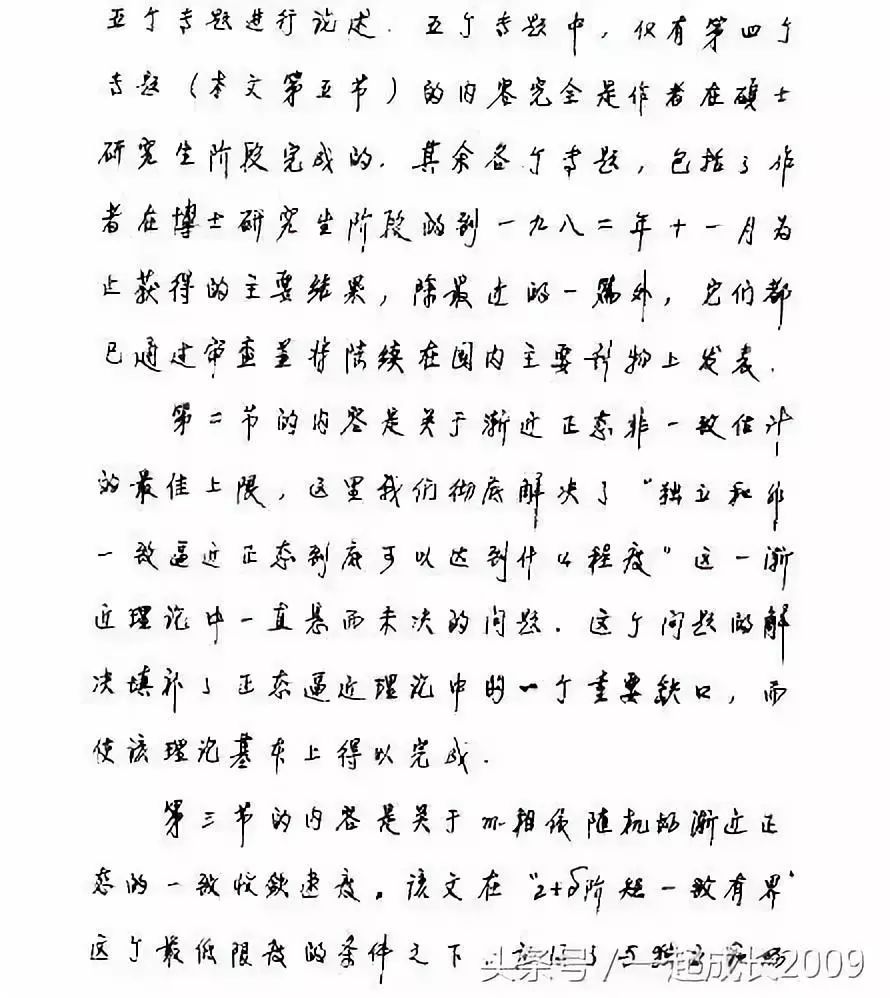 五个专题进行论述. 五个专题中, 仅有第四个
专题(本文第五节)的内容完全是作者在硕士
研究生阶段完成的. 其余各个专题, 包括了作
者在博士研究生阶段的到一九八二年十一月为
止获得的主要结果, 除最近的一篇外, 它们都
已通过审查并将陆续在国内主要刊物上发表.
第二节的内容是关于渐近正态非一致估计
的最佳上限, 这里我们彻底解决了“独立和非
一致逼近正态到底可以达到什么程度”这一渐
近理论中一直悬而未决的问题. 这个问题的解
决填补了正态逼近理论中的一个重要缺口, 而
使该理论基本上得以完成.
第三节的内容是关于m相依随机的渐近正
态的一致收敛速度. 该文在“2+δ阶矩一致有界”
这个最低限度的条件之下
头条号/一起成长2009